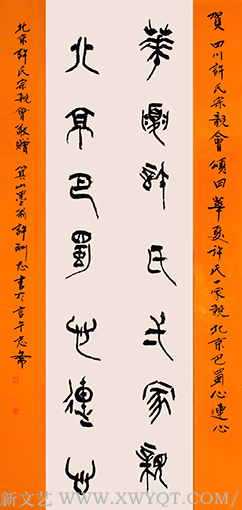 賀 四川許氏宗親會 頌曰 華夏許氏一家親 北京巴蜀心連心
華夏許氏弌家親
北京巴蜀心連心
北京許氏宗親會敬贈 箕山墨翁許志書於言午志齋
新文艺 www.XWYQT.com/